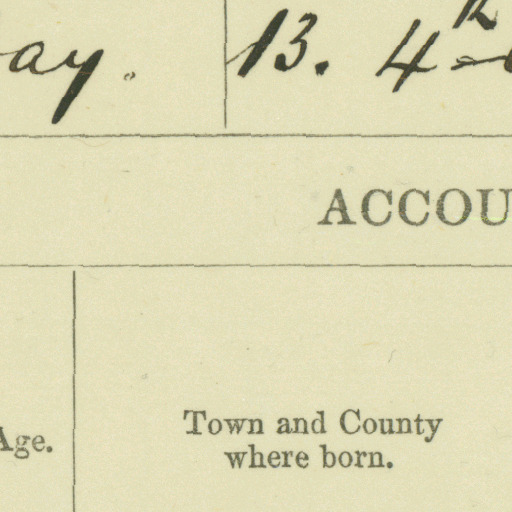 ay. 13. 4
ACCOU
Age.
Town and County
where born.